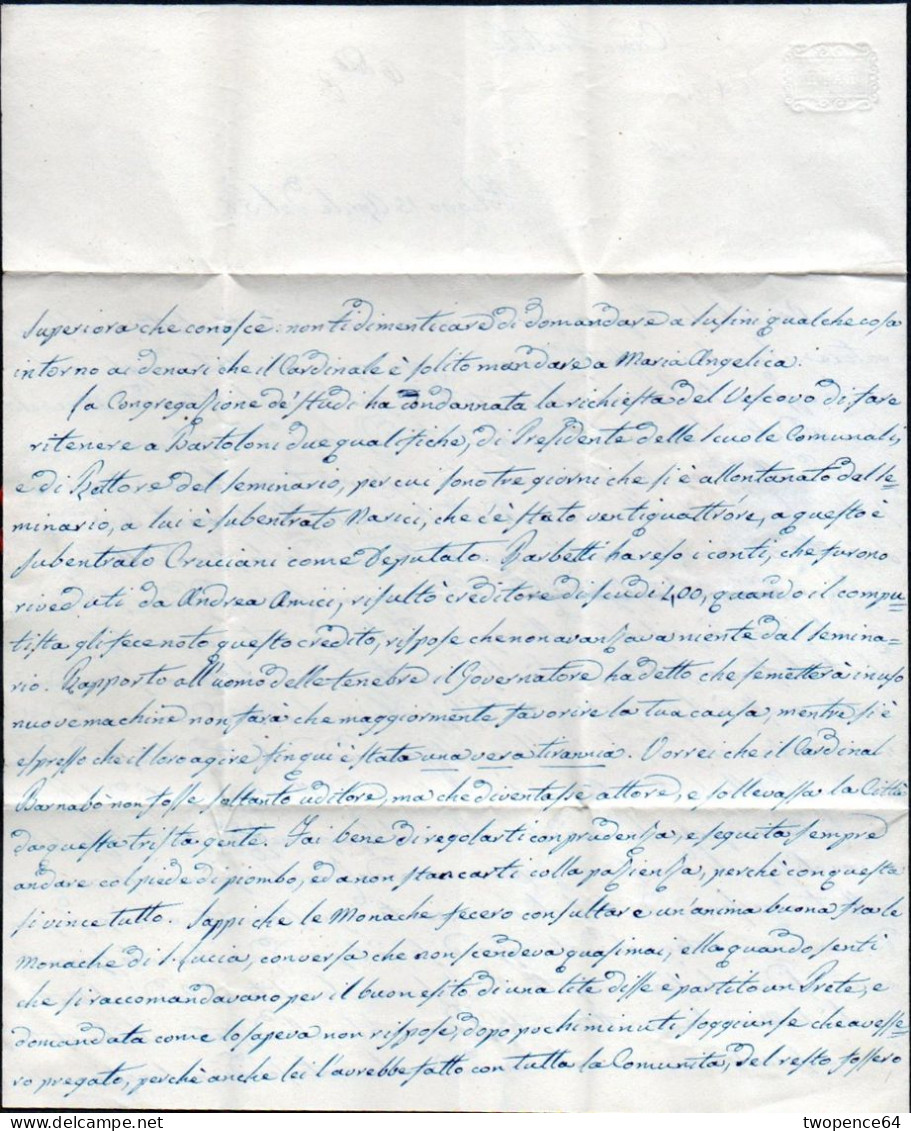 Superiora che conosce: non ti dimenticare di domandare a Susini qualche cosa
intorno ai denari che il Cardinale è solito mandare a Maria Angelica.
La Congregazione de' Studi ha condannata la richiesta del Vescovo di fare
ritenere a Bartoloni due qualifiche, di Presidente delle Scuole Comunali,
e di Rettore del Seminario, per cui sono tre giorni che si è allontanato dal Se=
minario, a lui è subentrato Narici, che c'è stato ventiquattr'ore, a questo è
subentrato Cruciani come Deputato. Barbetti ha reso i conti, che furono
riveduti da Andrea Amici, risultò creditore di scudi 400, quando il compu=
tista gli fece noto questo credito, rispose che non avanzava niente dal Semina=
rio. Rapporto all'uomo delle tenebre il Governatore ha detto che se metterà in uso
nuove machine non farà che maggiormente favorire la tua causa, mentre si è
espresso che il loro agire fin qui è stata una vera tirannia. Vorrei che il Cardinal
Barnabò non fosse soltanto uditore, ma che diventasse attore, e sollevassa la Città
da questa trista gente. Fai bene di regolarti con prudenza, e seguita sempre
andare col piede di piombo, ed a non stancarti colla pazienza, perchè con questa
si vince tutto. Sappi che le Monache fecero consultare un'anima buona fra le
Monache di S. Lucia, conversa che non scendeva quasi mai; ella quando sentì
che si raccomandavano per il buon esito di una lite disse è partito un Prete, e
domandata come lo sapeva non rispose, dopo pochi minuti soggiunse che avesse=
ro pregato, perchè anche lei l'avrebbe fatto con tutta la Comunità, del resto fossero
twopence64